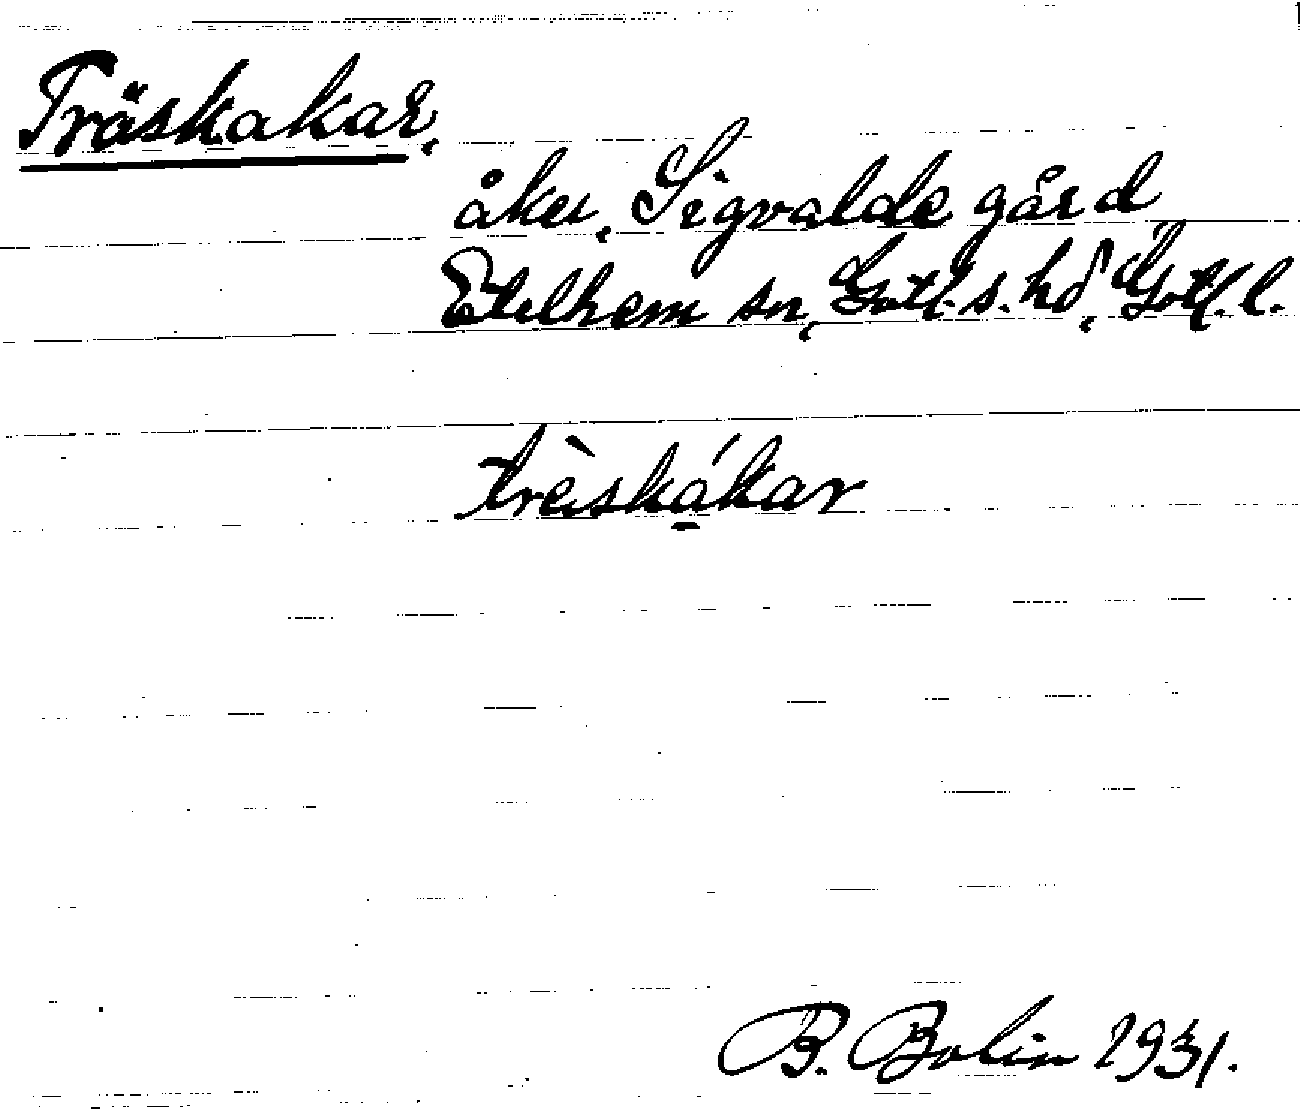 Träskakar,
åker, Sigvalde gård
Etelhem sn, Gotl. s. hd, Gotl. l.
trèiskákar
B. Bolin 1931.